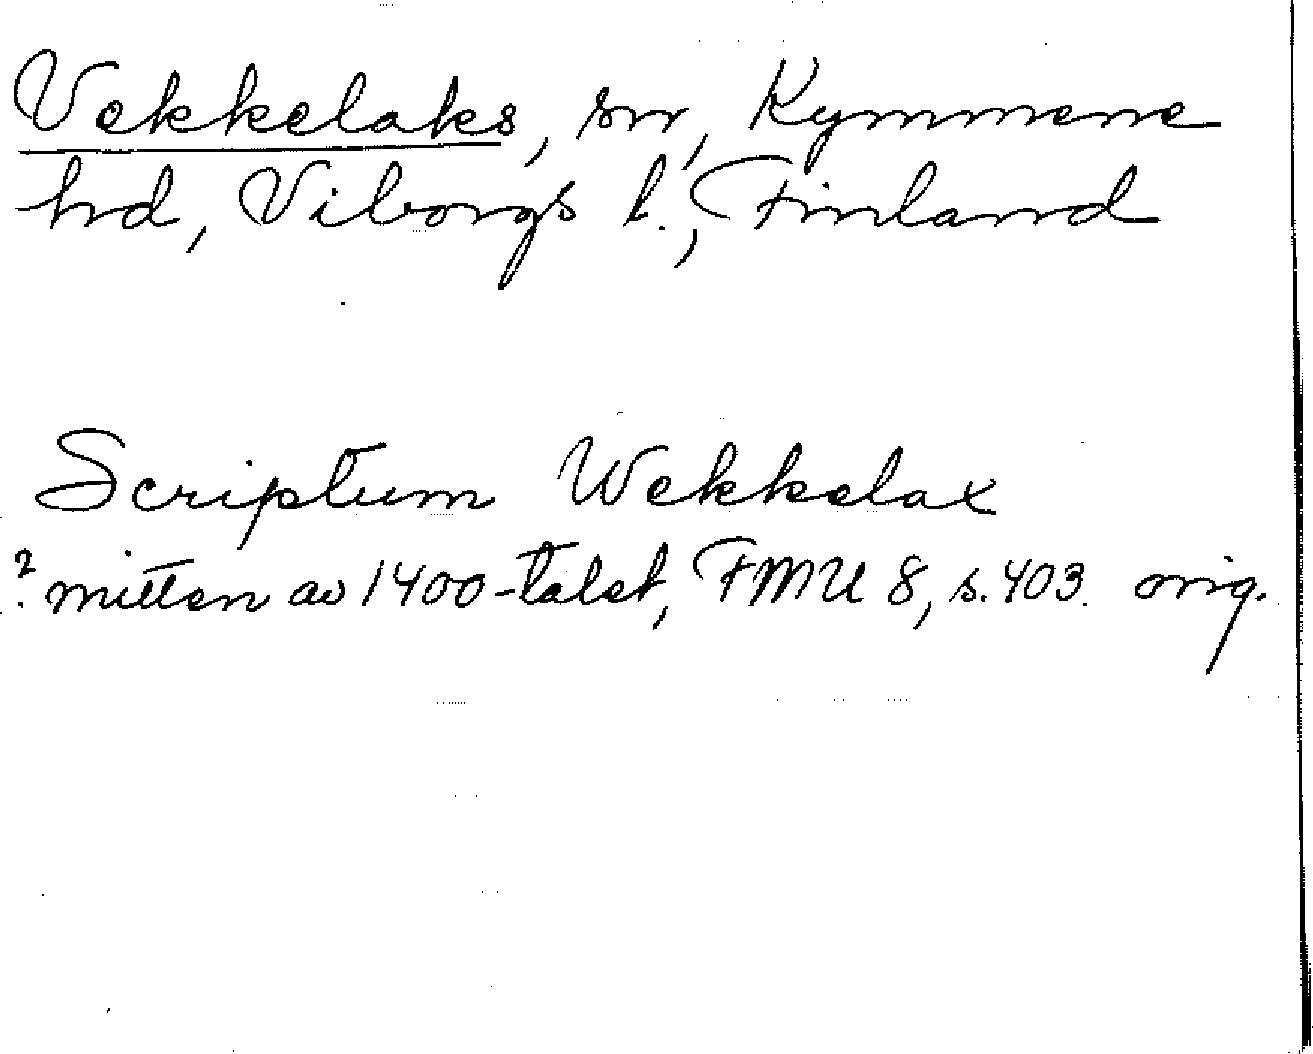 Vekkelaks, sn, Kymmene
hd, Viborgs l., Finland
Scriptum Wekkelax
? mitten av 1400-talet, FMU 8, s. 403. orig.